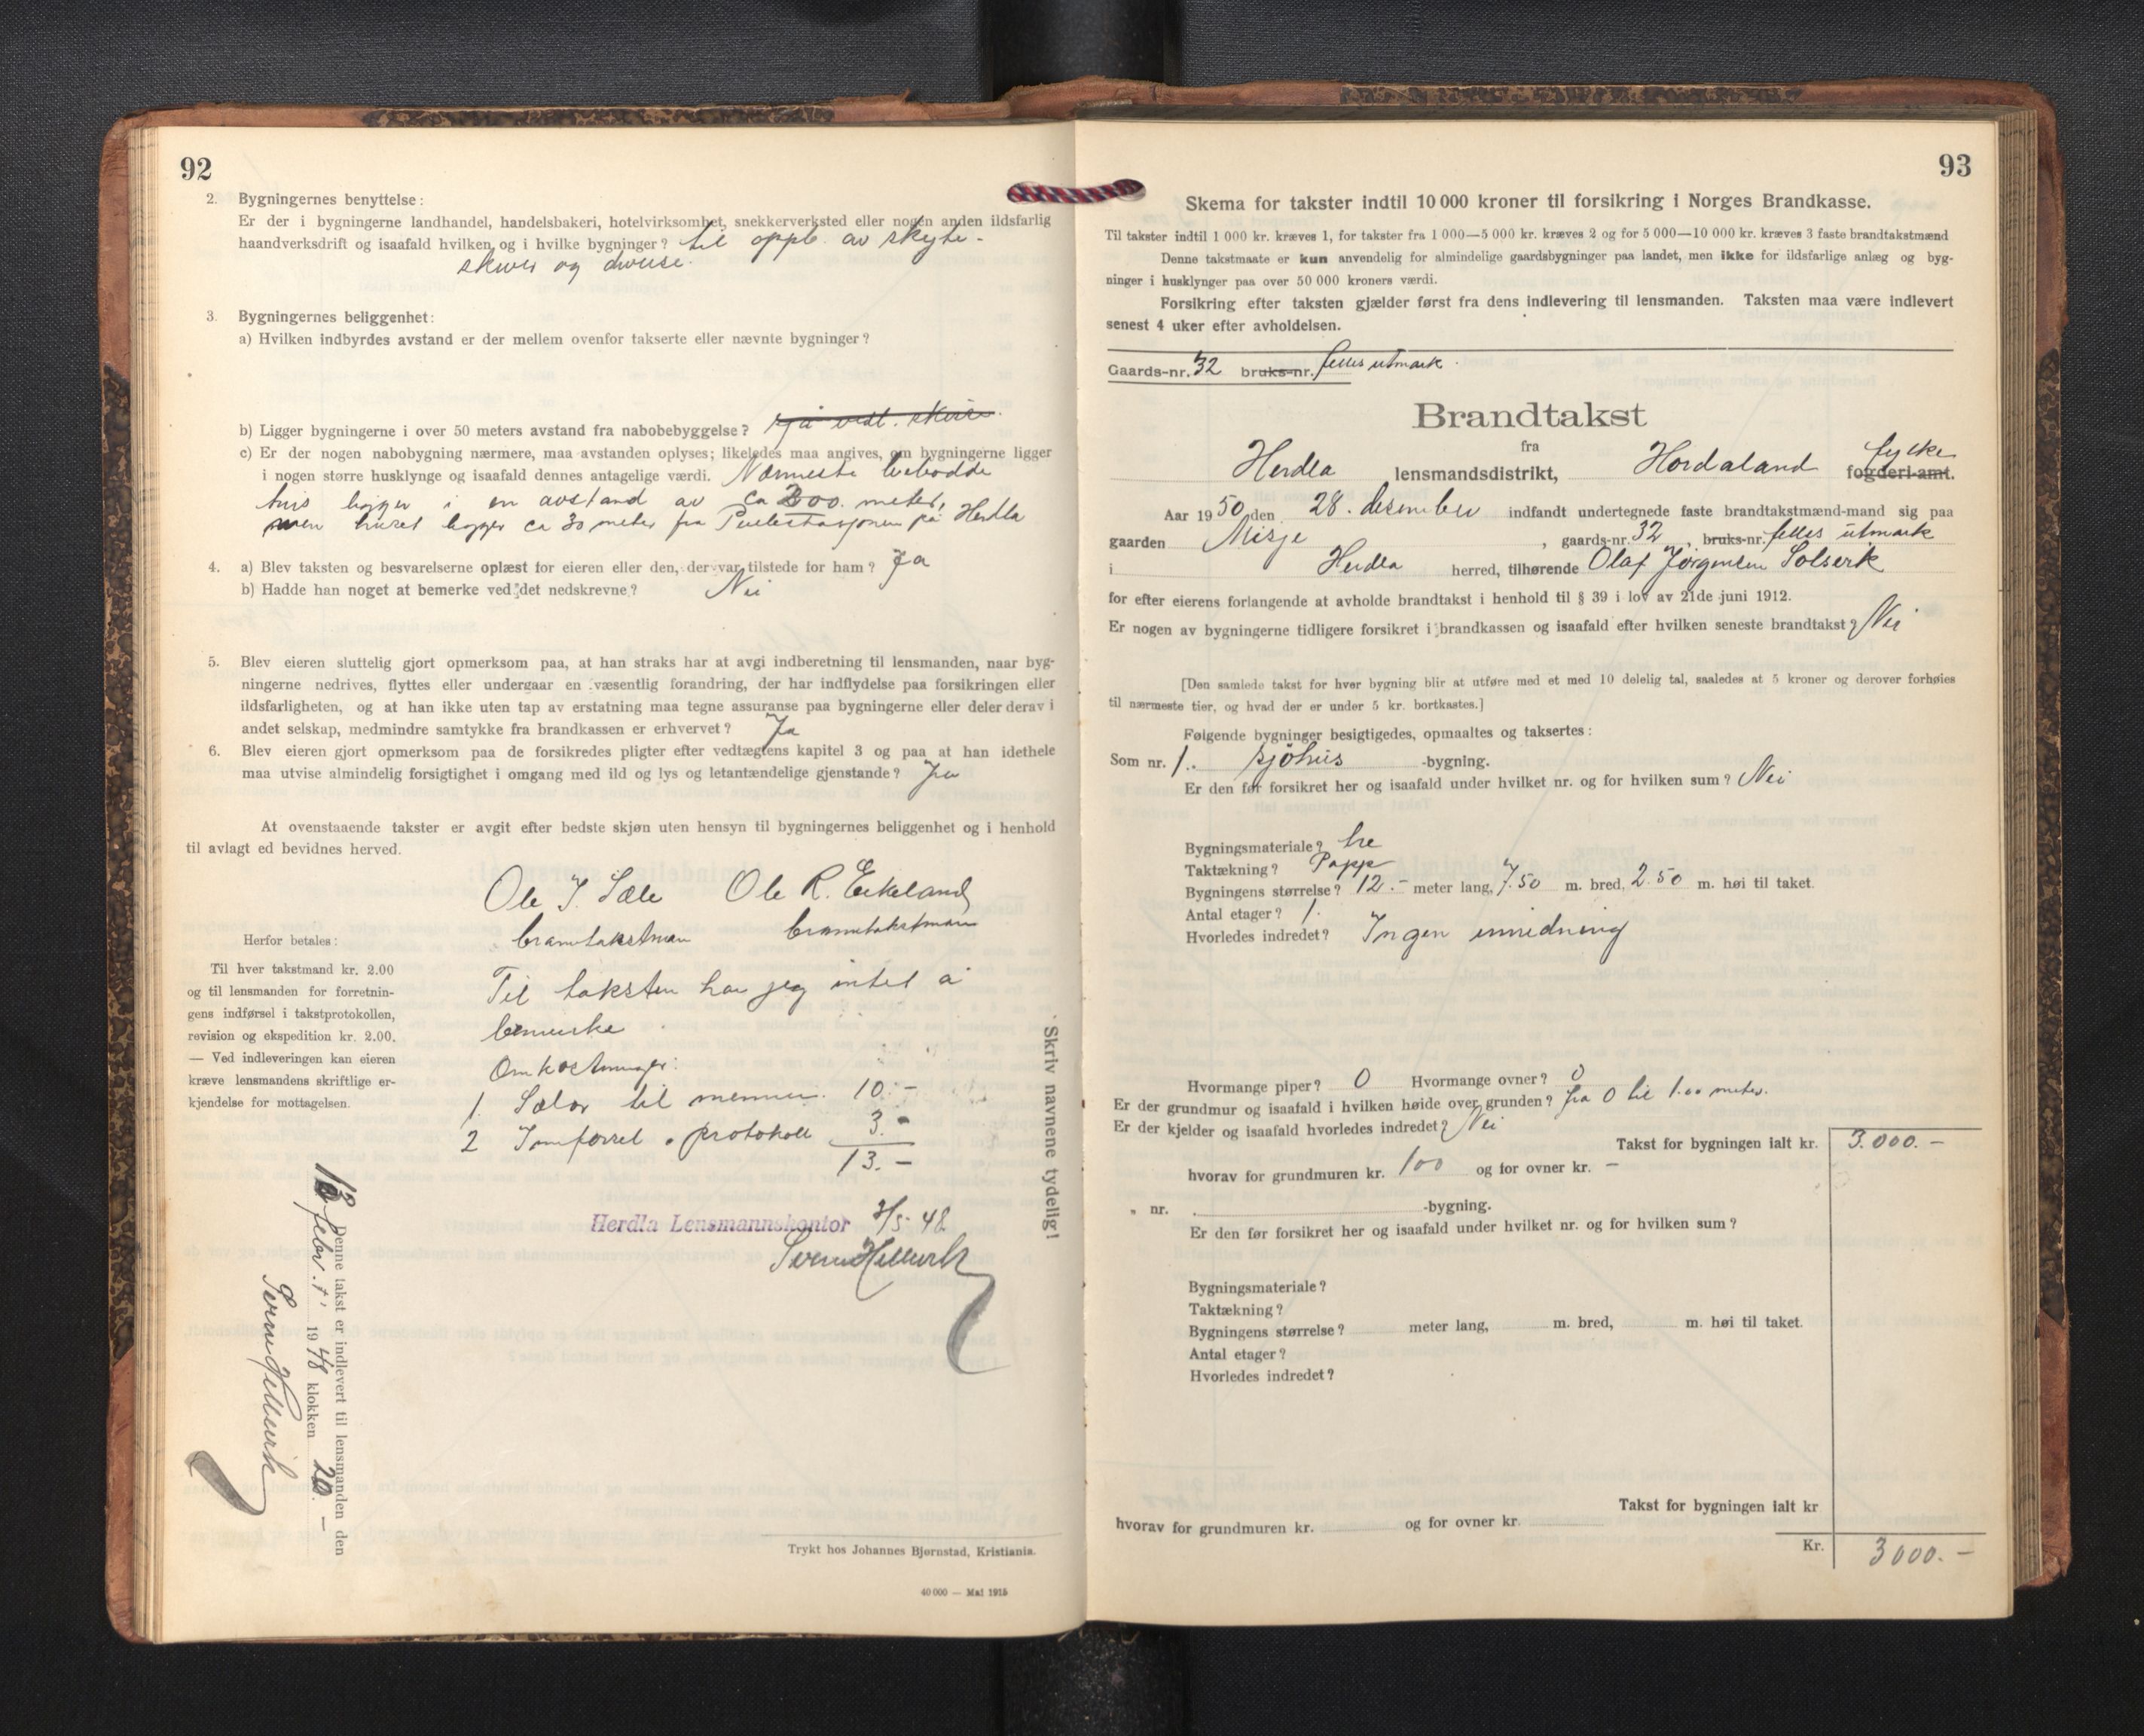 92
2. Bygningernes benyttelse:
Er der i bygningerne landhandel, handelsbakeri, hotelvirksomhet, snekkerverksted eller nogen anden ildsfarlig
haandverksdrift og isaafald hvilken og i hvilke bygninger? til oppb. av skyte-
skiver og diverse.
3. Bygningernes beliggenhet:
a) Hvilken indbyrdes avstand er der mellem ovenfor takserte eller nævnte bygninger?
b) Ligger bygningerne i over 50 meters avstand fra nabobebyggelse?
c) Er der nogen nabobygning nærmere, maa avstanden oplyses; likeledes maa angives, om bygningerne ligger
i nogen større husklynge og isaafald dennes antagelige værdi. Nærmeste bebodde
hus ligger i en avstand av ca 200. meter,
men huset ligger ca 30 meter fra på Herdla
4. a) Blev taksten og besvarelserne oplæst for eieren eller den, der var tilstede for ham? Ja
b) Hadde han noget at bemerke ved det nedskrevne? Nei
5. Blev eieren sluttelig gjort opmerksom paa, at han straks har at avgi indberetning til lensmanden, naar byg-
ningerne nedrives, flyttes eller undergaar en væsentlig forandring, der har indflydelse paa forsikringen eller
ildsfarligheten, og at han ikke uten tap av erstatning maa tegne assuranse paa bygningerne eller deler derav i
andet selskap, medmindre samtykke fra brandkassen er erhvervet? Ja
6. Blev eieren gjort opmerksom paa de forsikredes pligter efter vedtægtens kapitel 3 og paa at han idethele
maa utvise almindelig forsigtighet i omgang med ild og lys og letantændelige gjenstande? Ja
At ovenstaaende takster er avgit efter bedste skjøn uten hensyn til bygningernes beliggenhet og i henhold
til avlagt ed bevidnes herved.
Ole J. Sæle Ole R. Eikeland
branntakstman branntakstmann
Herfor betales:
Til hver takstmand kr. 2.00
og til lensmanden for forretnin-
gens indførsel i takstprotokollen,
revision og ekspedition kr. 2.00.
— Ved indleveringen kan eieren
kræve lensmandens skriftlige er-
kjendelse for mottagelsen.
Til taksten har jeg intet å
bemerke
Omkostninger:
1. Salær til mennen. 10.-
2 Innførsel i protokoll 3.-
13.-
Herdla Lensmannskontor 3/5-48
Skriv navnene tydelig!
Denne takst er indlevert til lensmanden den
febr. 1948 klokken 20.-
Trykt hos Johannes Bjørnstad, Kristiania.
40 000 — Mai 1915
93
Skema for takster indtil 10 000 kroner til forsikring i Norges Brandkasse.
Til takster indtil 1 000 kr. kræves 1, for takster fra 1 000—5 000 kr. kræves 2 og for 5 000—10 000 kr. kræves 3 faste brandtakstmænd
Denne takstmaate er kun anvendelig for almindelige gaardsbygninger paa landet, men ikke for ildsfarlige anlæg og byg-
ninger i husklynger paa over 50 000 kroners værdi.
Forsikring efter taksten gjælder først fra dens indlevering til lensmanden. Taksten maa være indlevert
senest 4 uker efter avholdelsen.
Gaards-nr. 32 bruks-nr. felles utmark
Brandtakst
fra
Herdla lensmandsdistrikt, Hordaland fylke fogderi-amt.
Aar 1950, den 28. desember indfandt undertegnede faste brandtakstmænd-mand sig paa
gaarden Misje, gaards-nr. 32, bruks-nr. felles utmark
i Herdla herred, tilhørende Olaf Jørgensen Solsvik
for efter eierens forlangende at avholde brandtakst i henhold til § 39 i lov av 21de juni 1912.
Er nogen av bygningerne tidligere forsikret i brandkassen og isaafald efter hvilken seneste brandtakst? Nei
[Den samlede takst for hver bygning blir at utføre med et med 10 delelig tal, saaledes at 5 kroner og derover forhøies
til nærmeste tier, og hvad der er under 5 kr. bortkastes.]
Følgende bygninger besigtigedes, opmaaltes og taksertes:
Som nr. 1. sjøhus -bygning.
Er den før forsikret her og isaafald under hvilket nr. og for hvilken sum? Nei
Bygningsmateriale? tre
Taktækning? Papp
Bygningens størrelse? 12.- meter lang, 7.50 m. bred, 2.50 m. høi til taket.
Antal etager? 1.
Hvorledes indredet? Ingen innredning
Hvormange piper? 0 Hvormange ovner? 0
Er der grundmur og isaafald i hvilken høide over grunden? fra 0 til 1.00 meter.
Er der kjelder og isaafald hvorledes indredet? Nei
Takst for bygningen ialt kr. 3.000.-
hvorav for grundmuren kr. 100 og for ovner kr. -
„ nr. -bygning.
Er den før forsikret her og isaafald under hvilket nr. og for hvilken sum?
Bygningsmateriale?
Taktækning?
Bygningens størrelse? meter lang, m. bred, m. høi til taket.
Antal etager?
Hvorledes indredet?
Takst for bygningen ialt kr
hvorav for grundmuren kr. og for ovner kr.
Kr. 3000.-